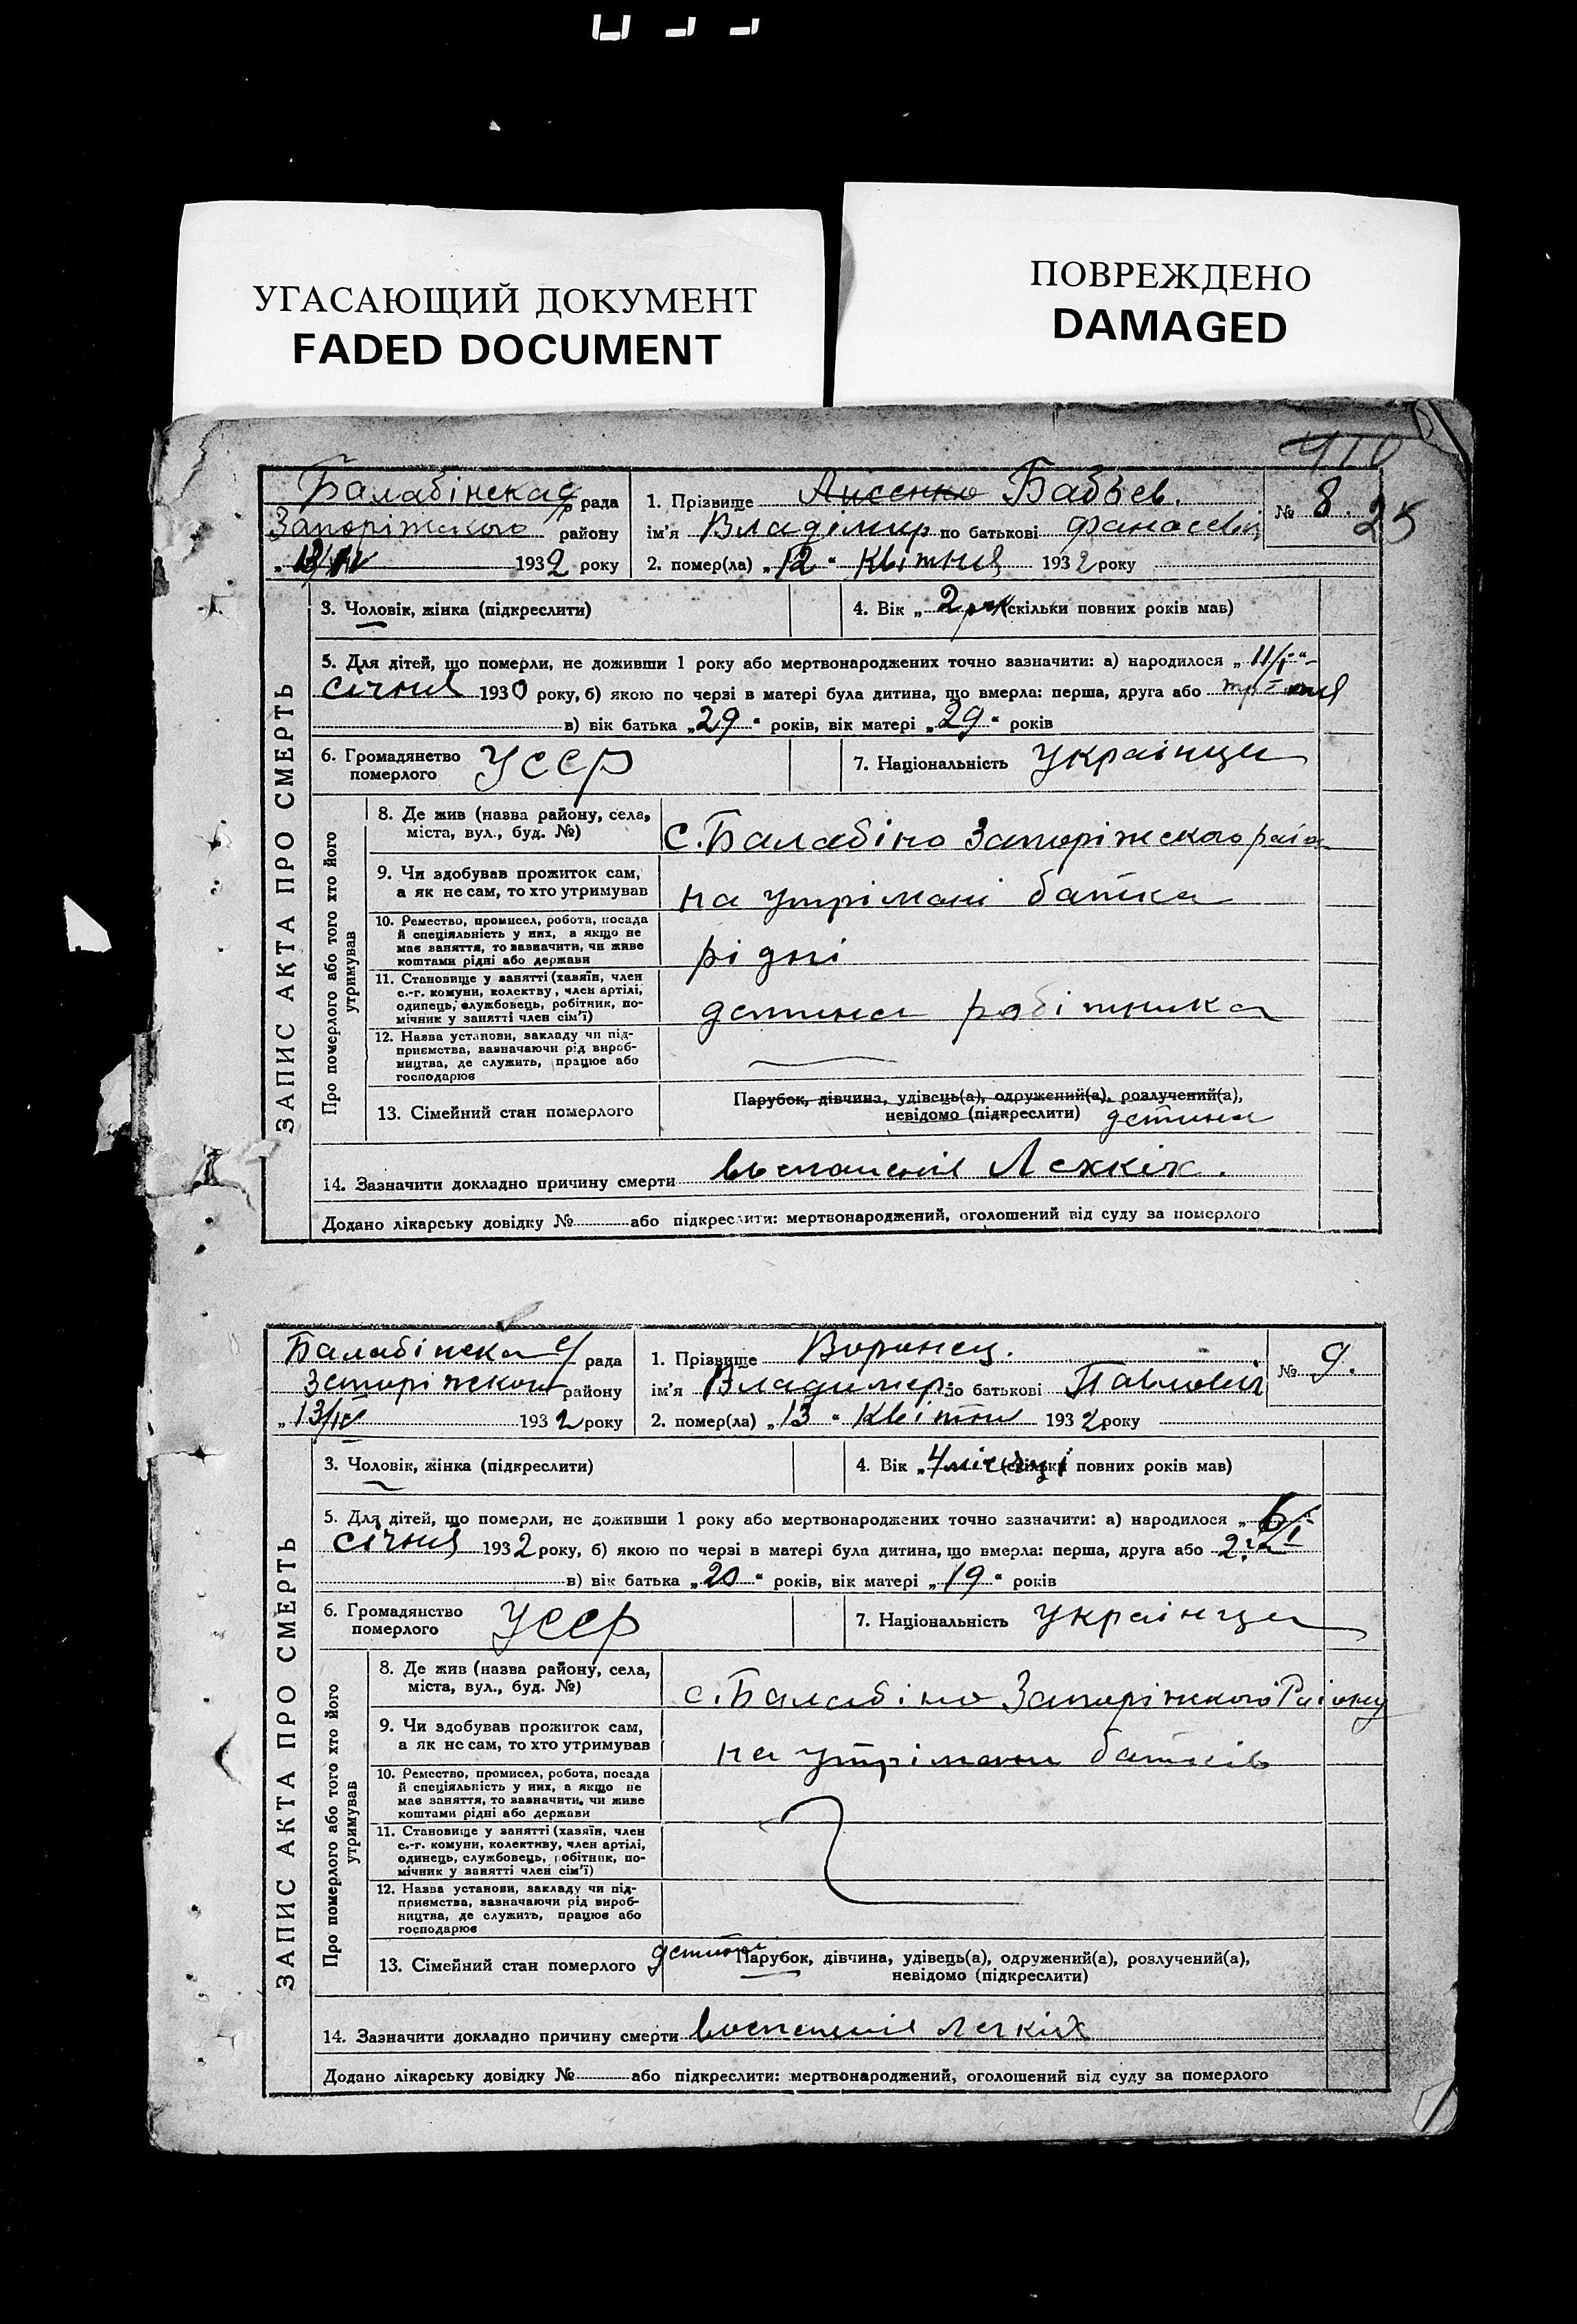 УГАСАЮЩИЙ ДОКУМЕНТ
FADED DOCUMENT
ПОВРЕЖДЕНО
DAMAGED
410
25
Балабінская рада
Запоріжского району
13/IV 1932 року
1. Прізвище Лисенко Бабьев.
ім'я Владімир по батькові Фанасевіч
2. помер(ла) „12“ Квітня 1932 року
№ 8.
ЗАПИС АКТА ПРО СМЕРТЬ
3. Чоловік, жінка (підкреслити)
4. Вік „2 рок (скільки повних років мав)
5. Для дітей, що померли, не доживши 1 року або мертвонароджених точно зазначити: а) народилося „11/I“
січня 1930 року, б) якою по черзі в матері була дитина, що вмерла: перша, друга або
в) вік батька „29“ років, вік матері „29“ років
6. Громадянство
померлого УССР
7. Національність Українци
Про померлого або того хто його
утримував
8. Де жив (назва району, села,
міста, вул., буд. №) с. Балабіно Запоріжскао
9. Чи здобував прожиток сам,
а як не сам, то хто утримував на утрімані батка
10. Ремество, промисел, робота, посада
й спеціяльність у них, а якщо не
має заняття, то зазначити, чи живе
коштами рідні або держави рідні
11. Становище у занятті (хазяїн, член
с.-г. комуни, колектву, член артілі,
одинець, службовець, робітник, по-
мічник у занятті член сім'ї) детина робітника
12. Назва установи, закладу чи під-
приємства, зазначаючи рід вироб-
ництва, де служить, працює або
господарює
13. Сімейний стан померлого
Парубок, дівчина, удівець(а), одружений(а), розлучений(а),
невідомо (підкреслити) детина
14. Зазначити докладно причину смерти Лехкіх.
Додано лікарську довідку № або підкреслити: мертвонароджений, оголошений від суду за померлого
Балабінска с/рада
Запоріжского району
„13/IV 1932 року
1. Прізвище Воронец.
ім'я Владимер по батькові Павловіч
2. помер(ла) „13“ Квітня 1932 року
№ 9.
ЗАПИС АКТА ПРО СМЕРТЬ
3. Чоловік, жінка (підкреслити)
4. Вік „4 місяці (скільки повних років мав)
5. Для дітей, що померли, не доживши 1 року або мертвонароджених точно зазначити: а) народилося „6/I
січня 1932 року, б) якою по черзі в матері була дитина, що вмерла: перша, друга або
в) вік батька „20“ років, вік матері „19“ років
6. Громадянство
померлого УССР
7. Національність Українци
Про померлого або того хто його
утримував
8. Де жив (назва району, села,
міста, вул., буд. №) с. Балабіно Запоріжкого Району
9. Чи здобував прожиток сам,
а як не сам, то хто утримував на утрімани батьків
10. Ремество, промисел, робота, посада
й спеціяльність у них, а якщо не
має заняття, то зазначити, чи живе
коштами рідні або держави
11. Становище у занятті (хазяїн, член
с.-г. комуни, колективу, член артілі,
одинець, службовець, робітник, по-
мічник у занятті член сім'ї)
12. Назва установи, закладу чи під-
приємства, зазначаючи рід вироб-
ництва, де служить, працює або
господарює
13. Сімейний стан померлого детина
Парубок, дівчина, удівець(а), одружений(а), розлучений(а),
невідомо (підкреслити)
14. Зазначити докладно причину смерти воспеленія легкіх
Додано лікарську довідку № або підкреслити: мертвонароджений, оголошений від суду за померлого